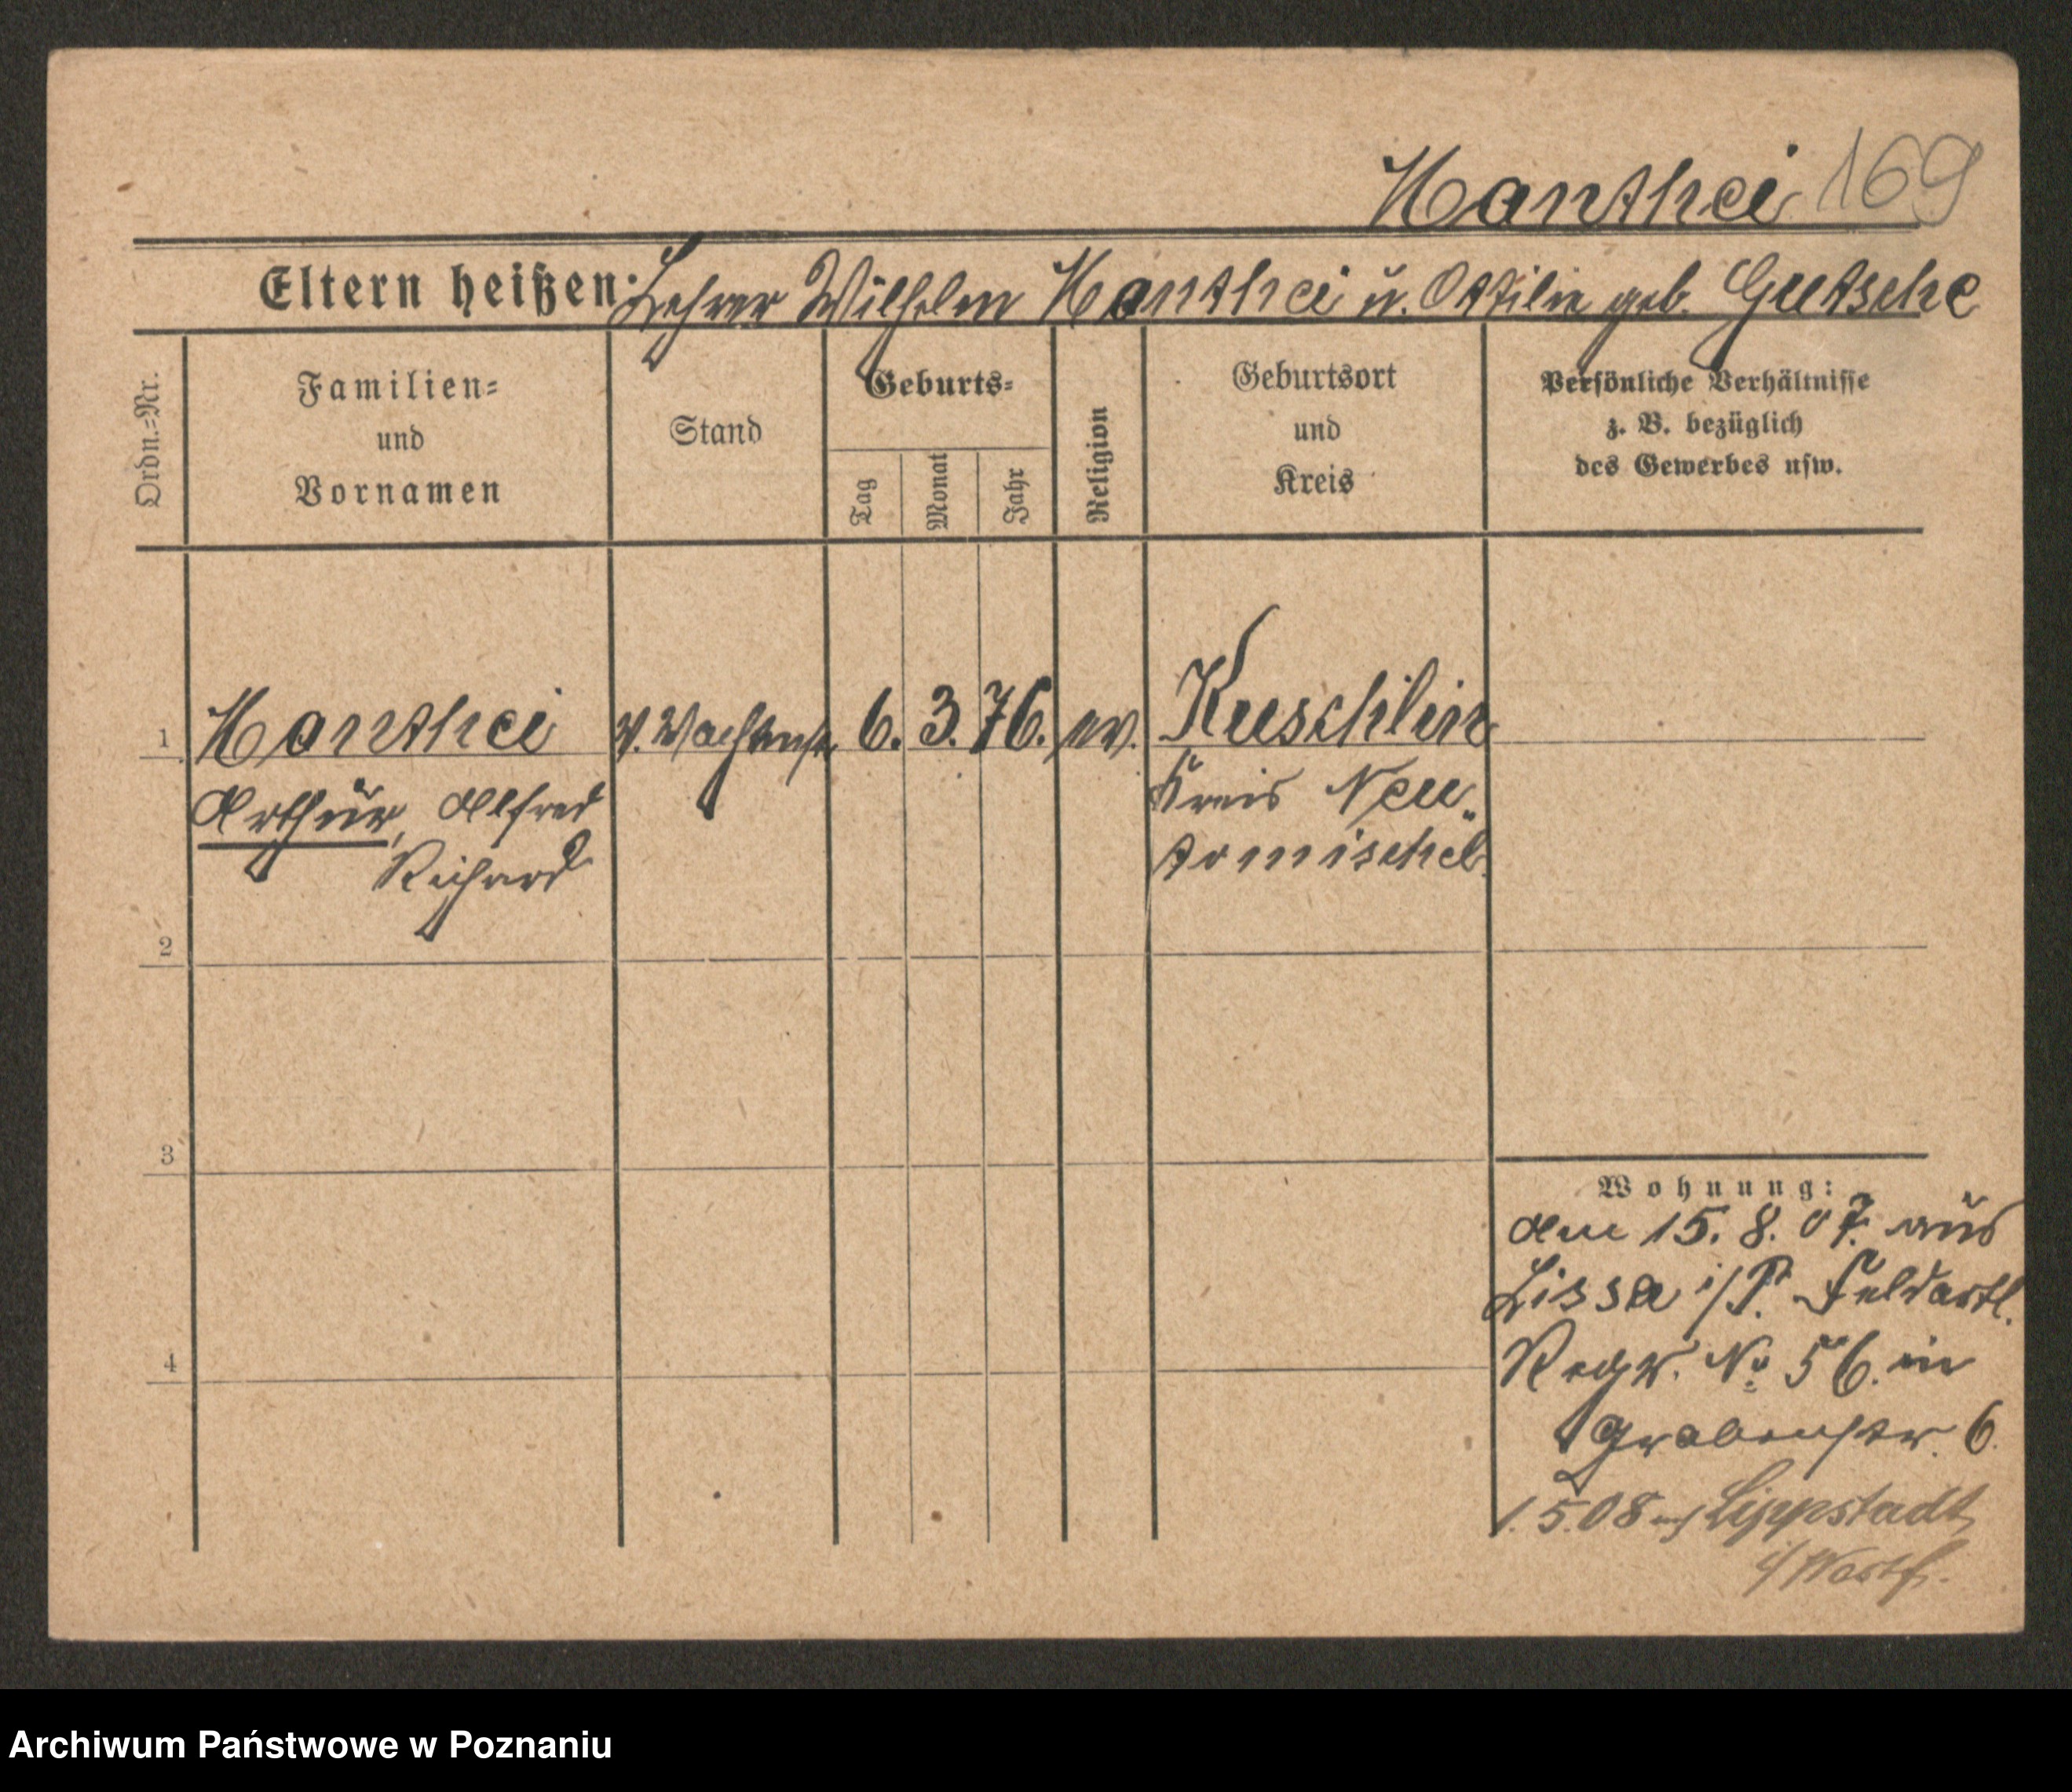 Manthei 169
Eltern heißen: Lehrer Wilhelm Manthei u. Ottilie geb. Gutsche
Ordn.-Nr.
Familien-
und
Vornamen
Stand
Geburts-
Tag
Monat
Jahr
Religion
Geburtsort
und
Kreis
Persönliche Verhältnisse
z. B. bezüglich
des Gewerbes usw.
1 Manthei 6. 3. 76. ev. Kuschlin
Arthur, Alfred
Richard
Kreis Neu-
tomischel
2
3
4
Wohnung:
Am 15. 8. 07. aus
Lissa i/P. Feldartl.
Regt. No 56. in
Grabenstr. 6.
1.5.08 nach Lippstadt
i/Westf.
Archiwum Państwowe w Poznaniu